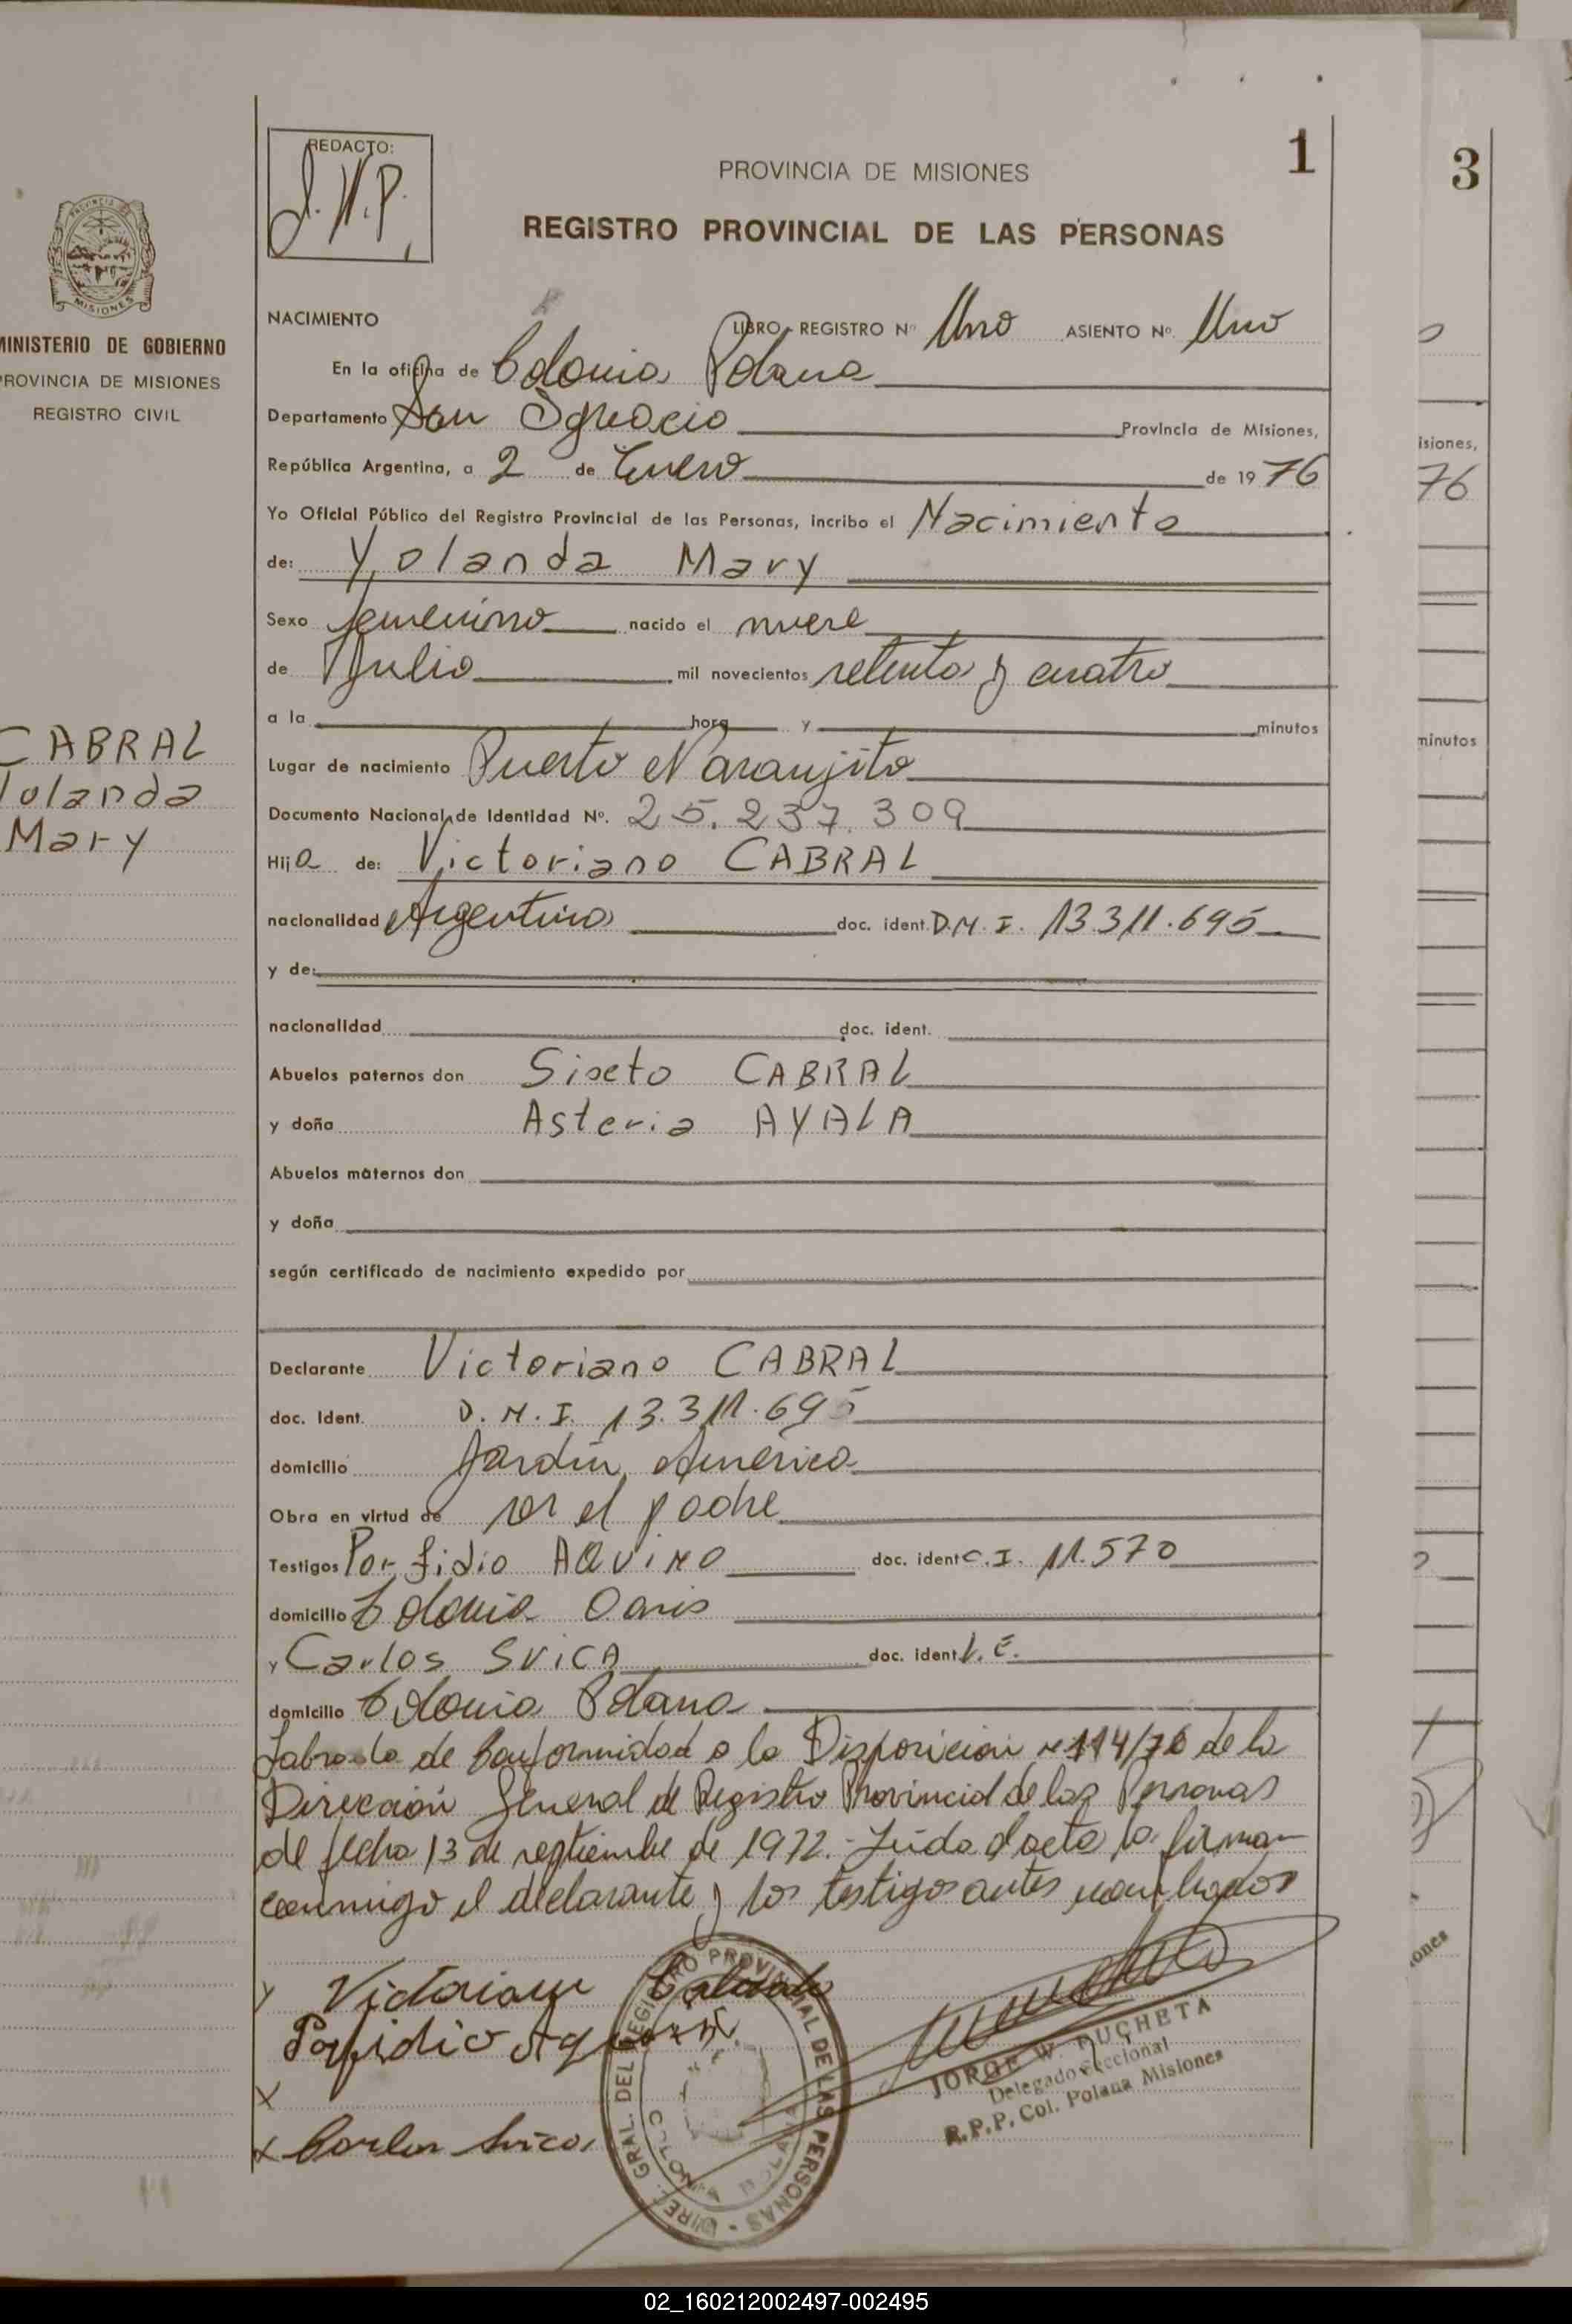 REDACTO:
J.W.P.
1
3
PROVINCIA DE MISIONES
REGISTRO PROVINCIAL DE LAS PERSONAS
PROVINCIA MISIONES
MINISTERIO DE GOBIERNO
PROVINCIA DE MISIONES
REGISTRO CIVIL
CABRAL
Yolanda
Mary
NACIMIENTO LIBRO - REGISTRO Nº Uno ASIENTO Nº Uno
En la oficina de Colonia Polana
Departamento San Ignacio Provincia de Misiones,
República Argentina, a 2 de Enero de 1976
Yo Oficial Público del Registro Provincial de las Personas, incribo el Nacimiento
de: Yolanda Mary
Sexo femenino nacido el nueve
de Julio mil novecientos setenta y cuatro
a la hora y minutos
Lugar de nacimiento Puerto Naranjito
Documento Nacional de Identidad Nº. 25.237.309
Hija de: Victoriano CABRAL
nacionalidad Argentina doc. ident. D.N.I. 13.311.695
y de:
nacionalidad doc. ident.
Abuelos paternos don Siseto CABRAL
y doña Asteria AYALA
Abuelos maternos don
y doña
según certificado de nacimiento expedido por
Declarante Victoriano CABRAL
doc. Ident. D.N.I. 13.311.695
domicilio Jardín América
Obra en virtud de ser el padre
Testigos Porfidio AQUINO doc. ident C.I. 11.570
domicilio Colonia Oasis
y Carlos SVICA doc. ident L.E.
domicilio Colonia Polana
Labrada de Conformidad a la Disposición nº 114/76 de la
Dirección General de Registro Provincial de las Personas
de fecha 13 de septiembre de 1972.- Leída el acta la firman
conmigo el declarante y los testigos antes nombrados
Victoriano
Porfidio
Carlos Svica
DIREC. GRAL. DEL REGISTRO PROVINCIAL DE LAS PERSONAS
COLONIA POLANA
JORGE W. PUCHETA
Delegado Seccional
R.P.P. Col. Polana Misiones
isiones,
76
minutos
iones
02_160212002497-002495